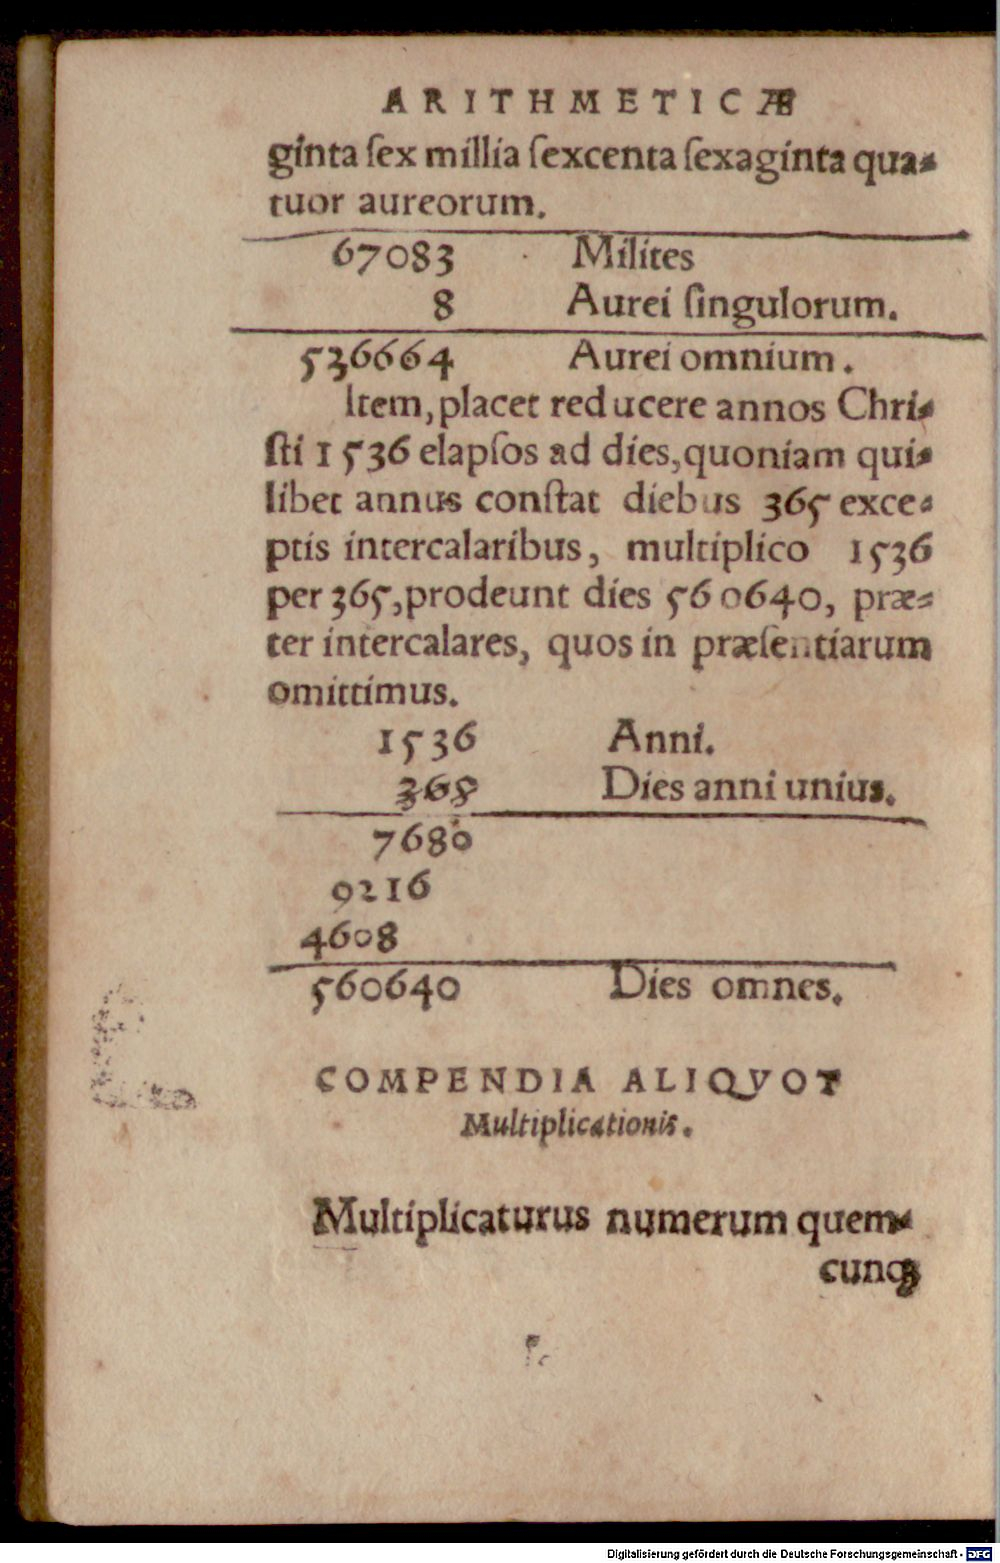 ARITHMETICÆ
ginta ſex millia ſexcenta ſexaginta qua-
tuor aureorum.
67083 Milites
8 Aurei ſingulorum.
536664 Aurei omnium.
Item, placet reducere annos Chri-
ſti 1536 elapſos ad dies, quoniam qui-
libet annus conſtat diebus 365 exce-
ptis intercalaribus, multiplico 1536
per 365, prodeunt dies 560640, præ-
ter intercalares, quos in præſentiarum
omittimus.
1536 Anni.
365 Dies anni unius.
7680
9216
4608
560640 Dies omnes.
COMPENDIA ALIQVOT
Multiplicationis.
Multiplicaturus numerum quem-
cunqꝫ
Digitalisierung gefördert durch die Deutsche Forschungsgemeinschaft - DFG